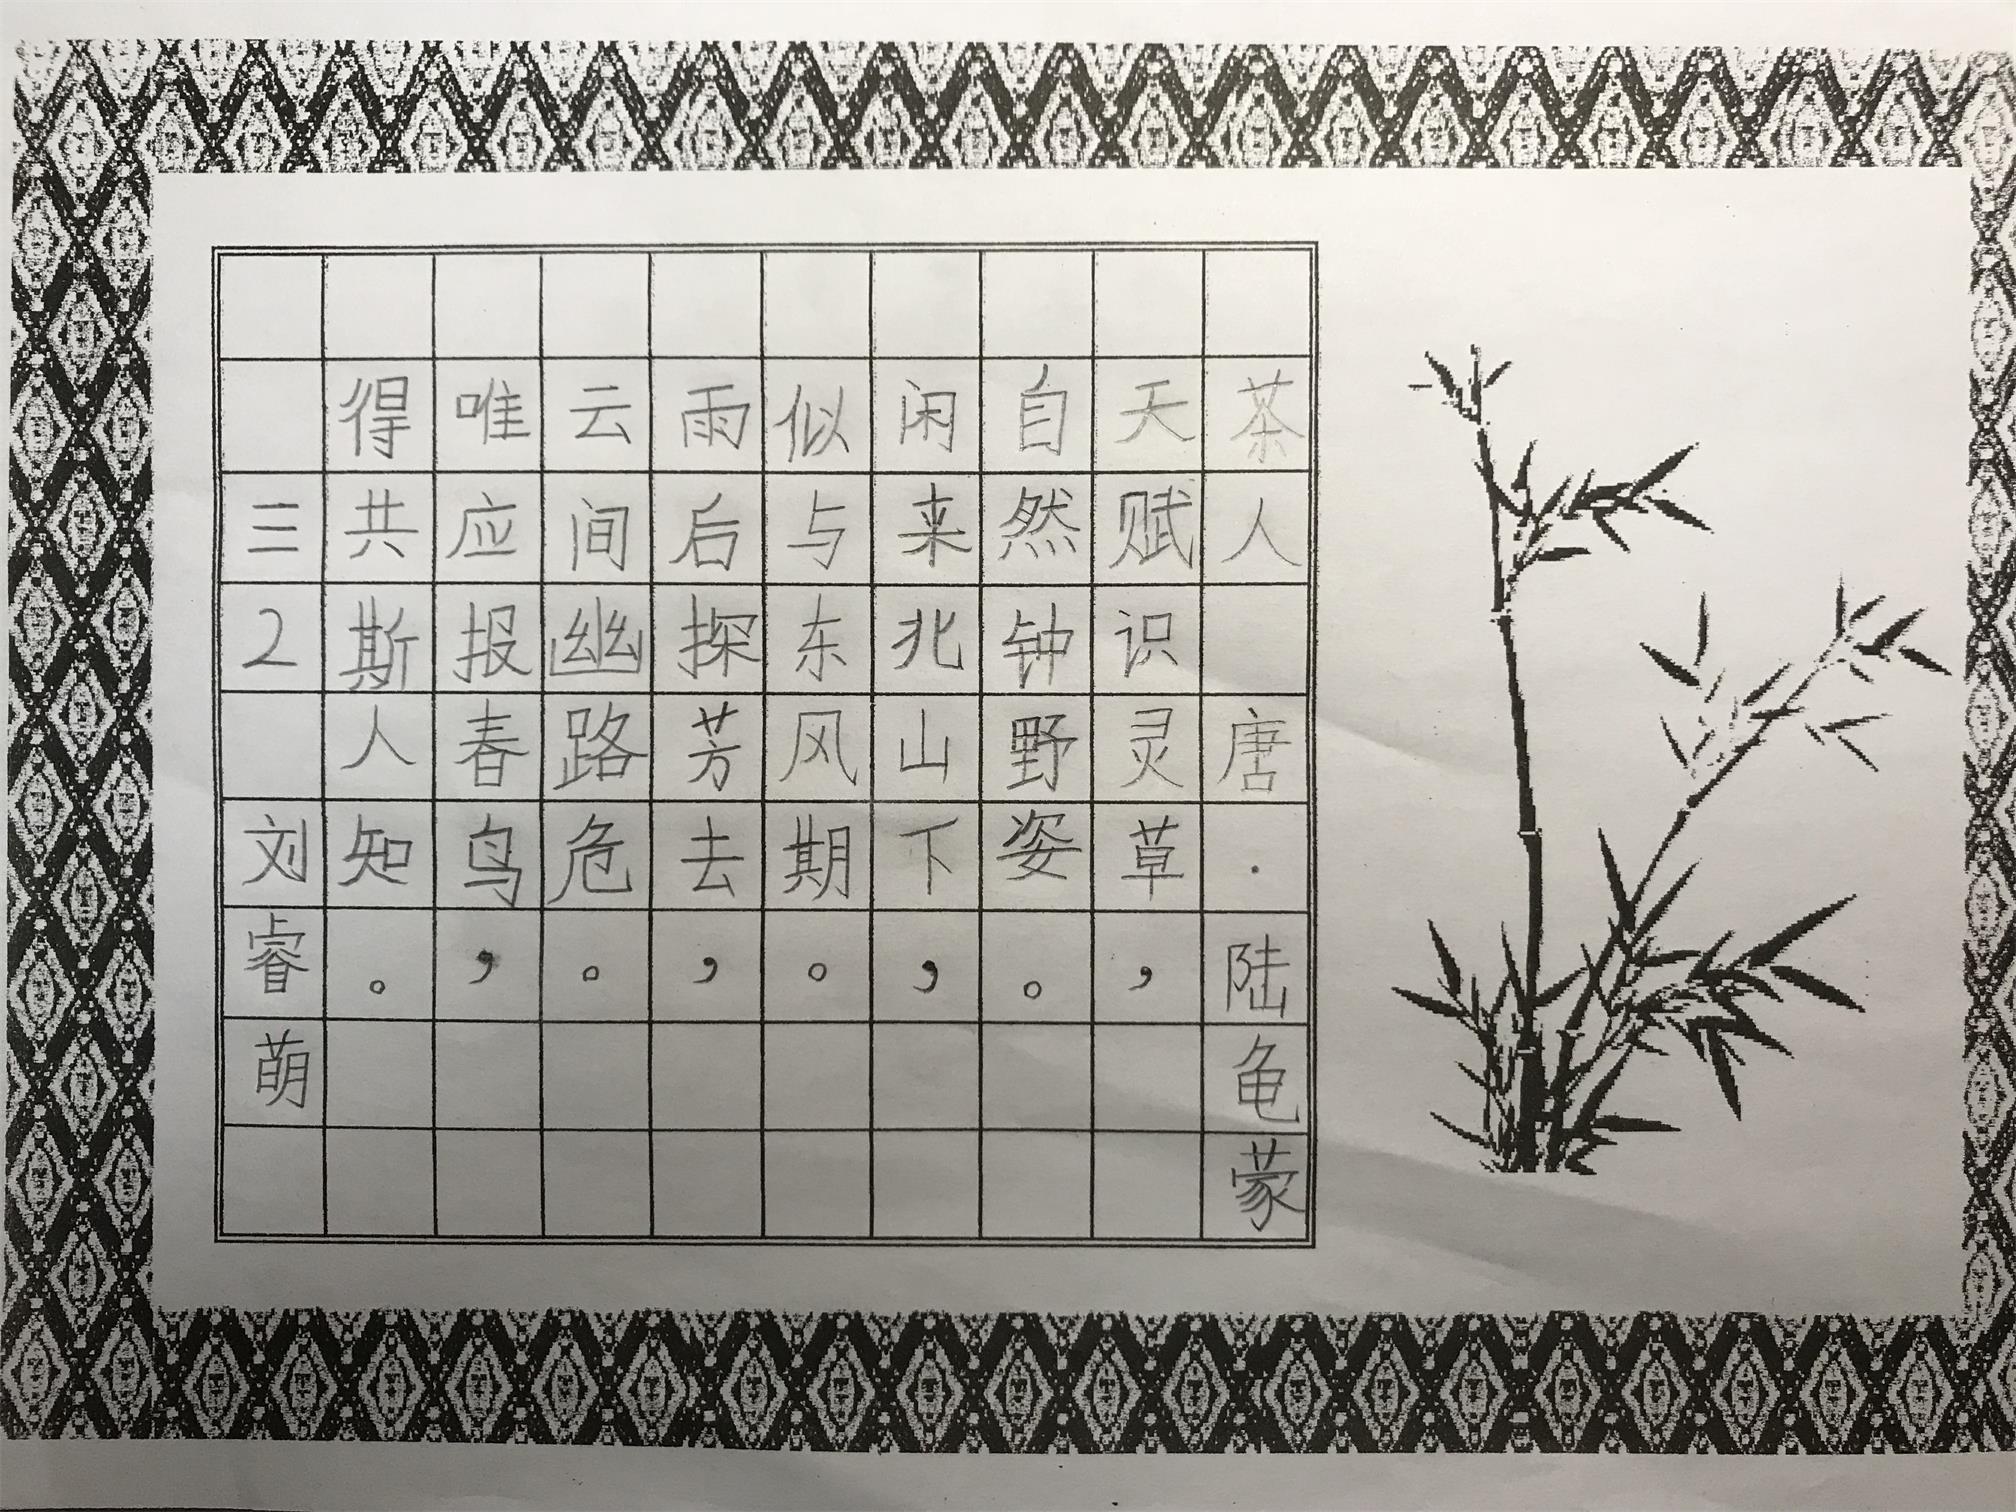 茶人 唐·陆龟蒙
天赋识灵草，
自然钟野姿。
闲来北山下，
似与东风期。
雨后探芳去，
云间幽路危。
唯应报春鸟，
得共斯人知。
三2 刘睿萌